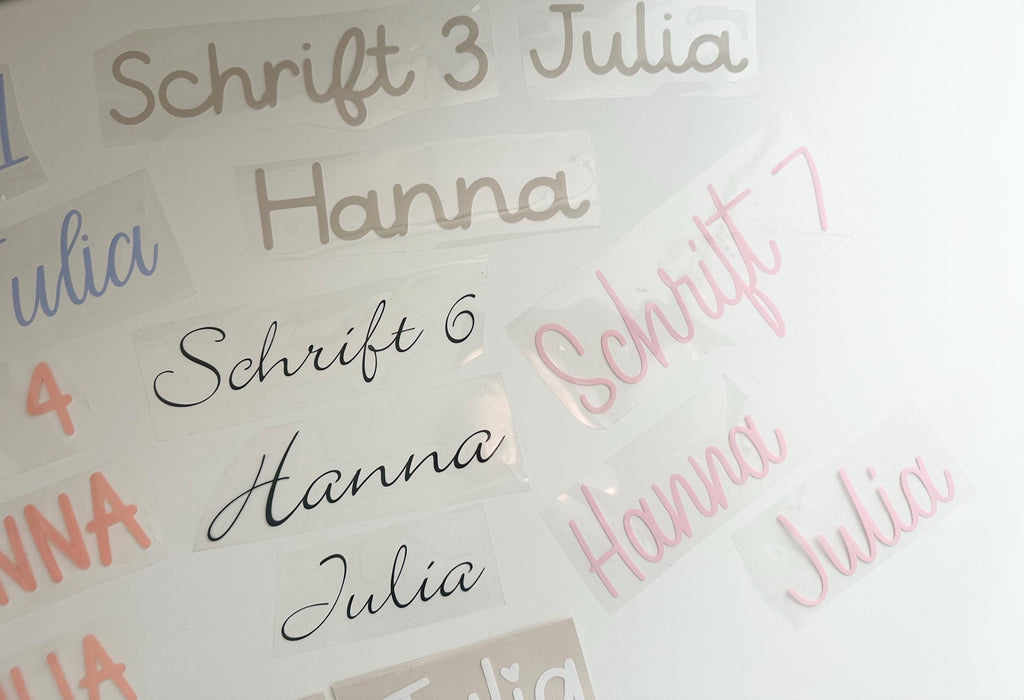 Schrift 3
Julia
1
Hanna
Julia
Schrift 7
Schrift 6
4
Hanna
Hanna
Julia
NNA
Julia
Julia